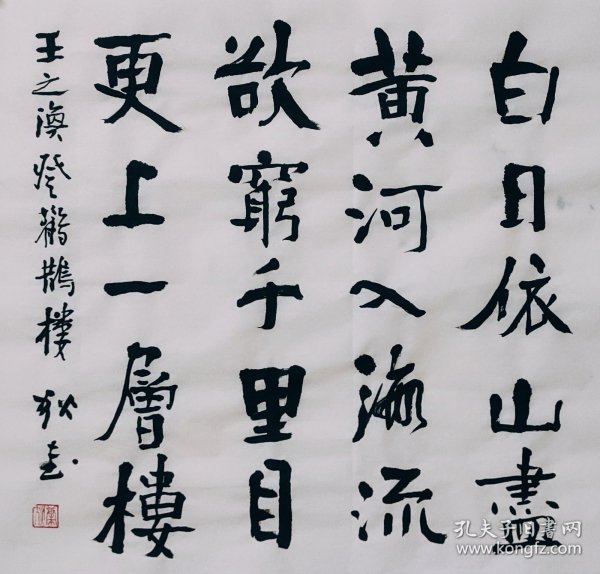 白日依山盡
黃河入海流
欲窮千里目
更上一層樓
王之渙登鸛鵲樓
孔夫子旧書网
www.kongfz.com